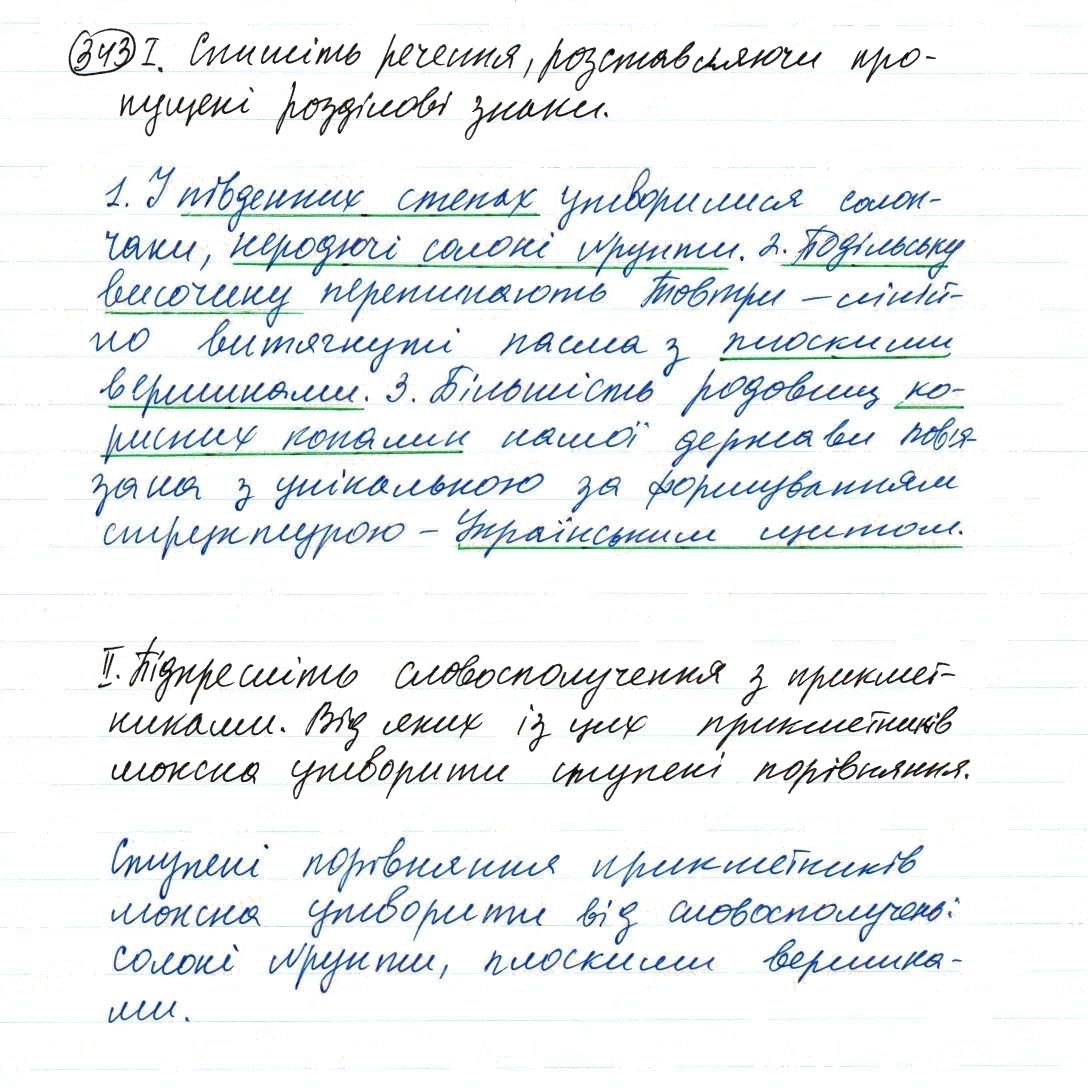 343 I. Спишіть речення, розставляючи про-
пущені розділові знаки.
1. У південних степах утворилися солон-
чаки, неродючі солоні ґрунти. 2. Подільську
височину перетинають Товтри – ліній-
но витягнуті пасма з плоскими
вершинами. 3. Більшість родовищ ко-
рисних копалин нашої держави пов'я-
зана з унікальною за формуванням
структурою – Українським щитом.
II. Підкресліть словосполучення з прикмет-
никами. Від яких із цих прикметників
можна утворити ступені порівняння.
Ступені порівняння прикметників
можна утворити від словосполучень:
солоні ґрунти, плоскими вершина-
ми.